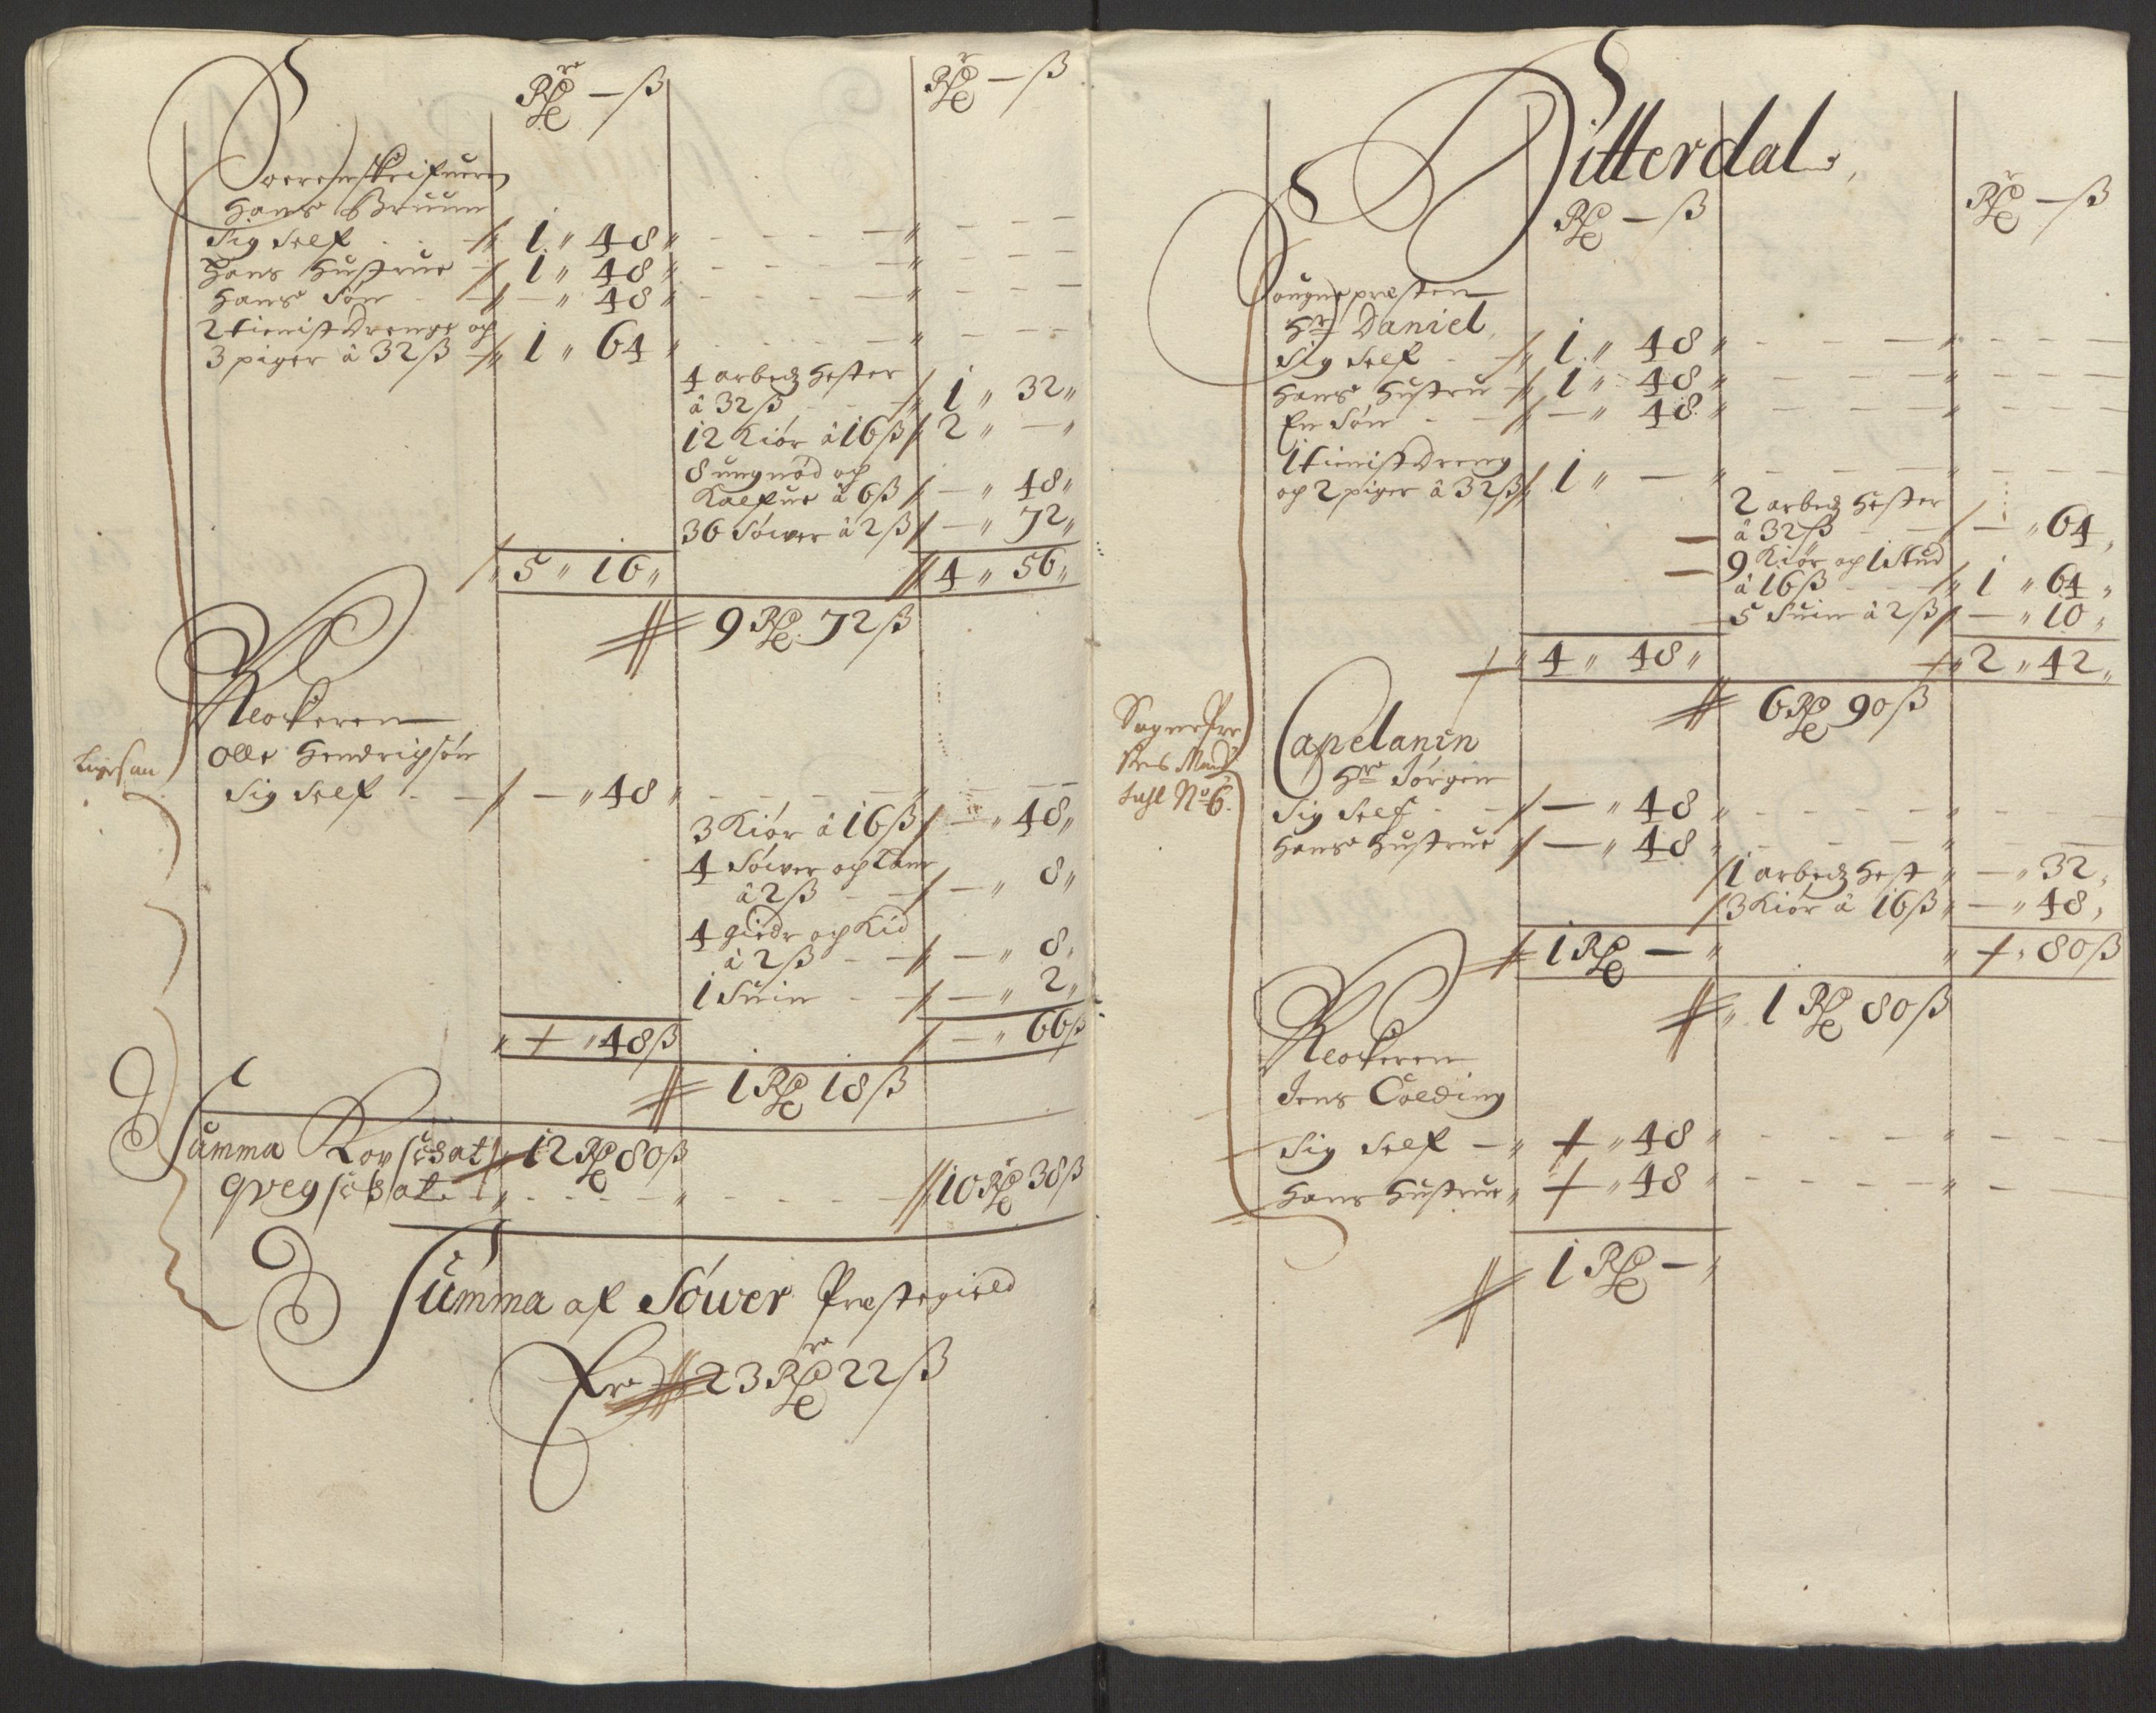 Rdr — ß   Rdr — ß
Soerenskrifueren
Hans Bruun
Sig Self - - 1 " 48 " - - - - " - - -
Hans Hustrue - 1 " 48 " - - - - " - - -
Hans Søn - - — " 48 " - - - - " - - -
2 tienist Drenge og
3 piger â 32 ß - 1 " 64 " - - - - " - - -
4 arbeidz Hester
â 32 ß - - 1 " 32 "
12 Kiör â 16 ß 2 " — "
8 ungnød og
Kalfue â 6 ß — " 48 "
36 Söwer â 2 ß — " 72 "
" 5 " 16 "   4 " 56 "
9 Rd 72 ß
Klockeren
Olle Hendrigsön
Sig Self - - — " 48 " - - - - " - - -
3 Kiör â 16 ß — " 48 "
4 Söwer og Lam
â 2 ß - - — " 8 "
4 gieder og Kid
â 2 ß - - — " 8 "
1 Suin - - — " 2 "
" — " 48 ß   — " 66 ß
1 Rd 18 ß
Summa Kopschat 12 Rd 80 ß
Qvegschat - - " - - - - " - - - - 10 Rdr 38 ß
Summa af Söwer Præstegield
Er 23 Rdr 22 ß
Hitterdal,
Rd — ß   Rdr — ß
Sougnepræsten
Hr Daniel
Sig Self - - 1 " 48 " - - - - " - - -
Hans Hustru 1 " 48 " - - - - " - - -
En Søn - - — " 48 " - - - - " - - -
1 tienist Dreng
og 2 piger â 32 ß 1 " — " - - - - " - - -
2 arbeidz Hester
â 32 ß - - — " 64 "
9 Kiör og 1 Stud
â 16 ß - - 1 " 64 "
5 Suin â 2 ß — " 10 "
" 4 " 48 "   " 2 " 42 "
6 Rd 90 ß
Sogne Præ
stens Mand
tahl No 6.
Capelanen
Hr Jörgen
Sig Self - - — " 48 " - - - - " - - -
Hans Hustrue — " 48 " - - - - " - - -
1 arbeidz Hest " — " 32 "
3 Kiör â 16 ß " — " 48 "
1 Rd — "   " — " 80 ß
" 1 Rd 80 ß
Klockeren
Jens Colding
Sig Self - " — " 48 " - - - - " - - -
Hans Hustrue " — " 48 " - - - - " - - -
1 Rd — "